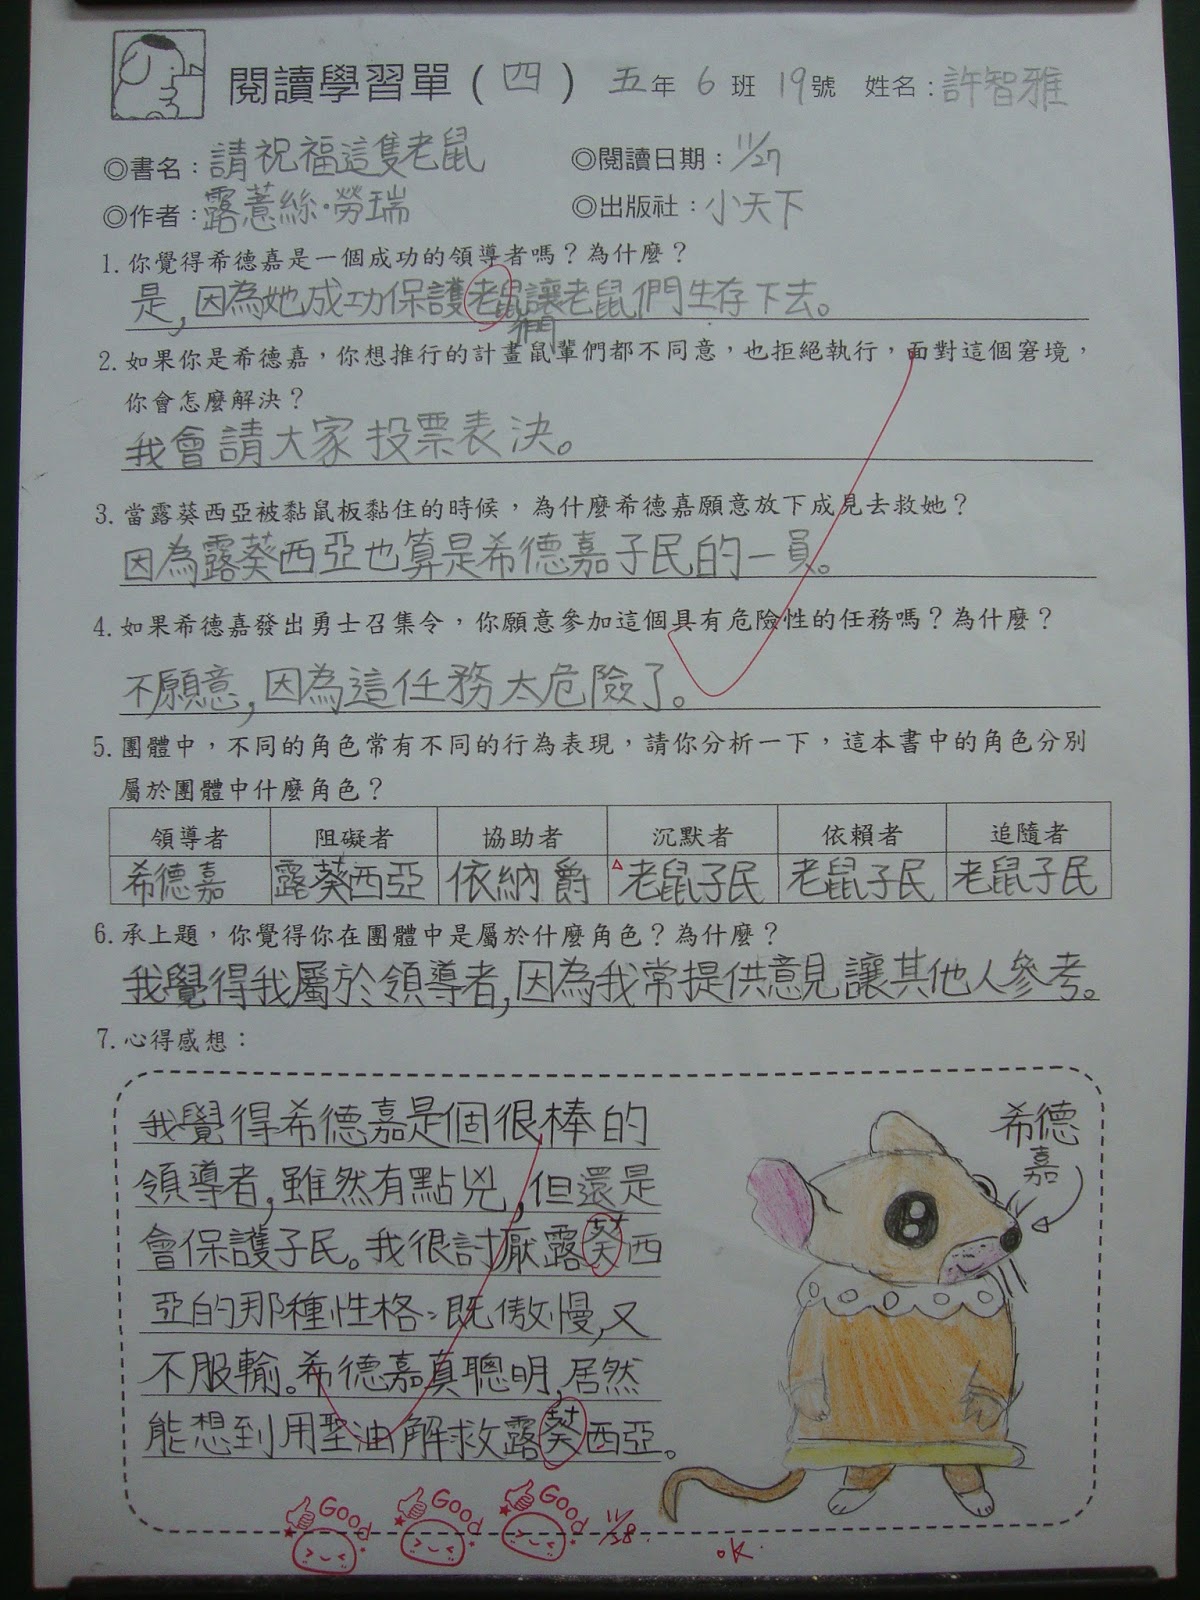 閱讀學習單（四） 五年 6 班 19號 姓名：許智雅
◎書名：請祝福這隻老鼠 ◎閱讀日期：11/27
◎作者：露薏絲·勞瑞 ◎出版社：小天下
1. 你覺得希德嘉是一個成功的領導者嗎？為什麼？
是，因為她成功保護老鼠讓老鼠們生存下去。
們
2. 如果你是希德嘉，你想推行的計畫鼠輩們都不同意，也拒絕執行，面對這個窘境，
你會怎麼解決？
我會請大家投票表決。
3. 當露葵西亞被黏鼠板黏住的時候，為什麼希德嘉願意放下成見去救她？
因為露葵西亞也算是希德嘉子民的一員。
4. 如果希德嘉發出勇士召集令，你願意參加這個具有危險性的任務嗎？為什麼？
不願意，因為這任務太危險了。
5. 團體中，不同的角色常有不同的行為表現，請你分析一下，這本書中的角色分別
屬於團體中什麼角色？
領導者 阻礙者 協助者 沉默者 依賴者 追隨者
希德嘉 露葵西亞 依納爵 老鼠子民 老鼠子民 老鼠子民
6. 承上題，你覺得你在團體中是屬於什麼角色？為什麼？
我覺得我屬於領導者，因為我常提供意見讓其他人參考。
7. 心得感想：
我覺得希德嘉是個很棒的
領導者，雖然有點兇，但還是
會保護子民。我很討厭露葵西
亞的那種性格：既傲慢，又
不服輸。希德嘉真聰明，居然
能想到用聖油解救露葵西亞。
希德
嘉
Good Good Good 11/28
OK.